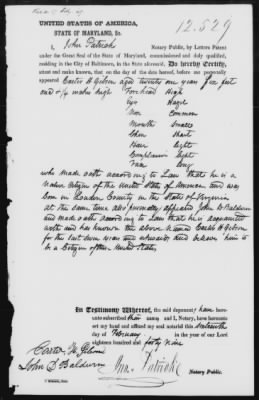 12.529
UNITED STATES OF AMERICA,
STATE OF MARYLAND, Sc.
I John Patrick Notary Public, by Letters Patent
under the Great Seal of the State of Maryland, commissioned and duly qualified,
residing in the City of Baltimore, in the State aforesaid, Do hereby Certify,
attest and make known, that on the day of the date hereof, before me personally
appeared Carter H Gibson aged twenty one year five feet
inches high Forehead High
Eyes Hazel
Nose Common
Mouth Small
Chin Short
Hair light
Complexion light
Face long
who made oath according to Law that he is a
Native Citizen of the United States of America and was
born in Louden County in the State of Virginia
at the same time also personally appeared John D Baldwin
and made oath according to Law that he is acquainted
with and has known the above named Carter H Gibson
for the last seven years and believe him to
be a Citizen of the United States
In Testimony Whereof, the said deponent have here-
unto subscribed their names and I, Notary, have hereunto
set my hand and affixed my seal notarial this Sixteenth
day of February in the year of our Lord
eighteen hundred and forty nine
Carter H Gibson
John D Baldwin
Jno. Patrick
Notary Public.